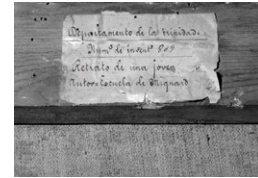 Departamento de la trinidad.
Num.º de invent.º 909
Retrato de una joven
Autor= Escuela de Mignard